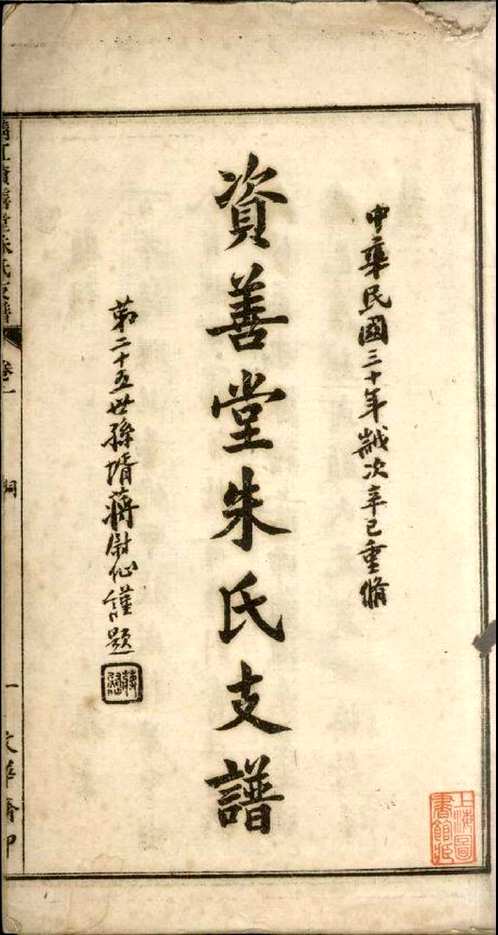 中華民國三十年歲次辛巳重脩
資善堂朱氏支譜
第二十五世孫壻蔣尉心謹題
資善堂朱氏支譜
卷一
一
上海圖書館藏